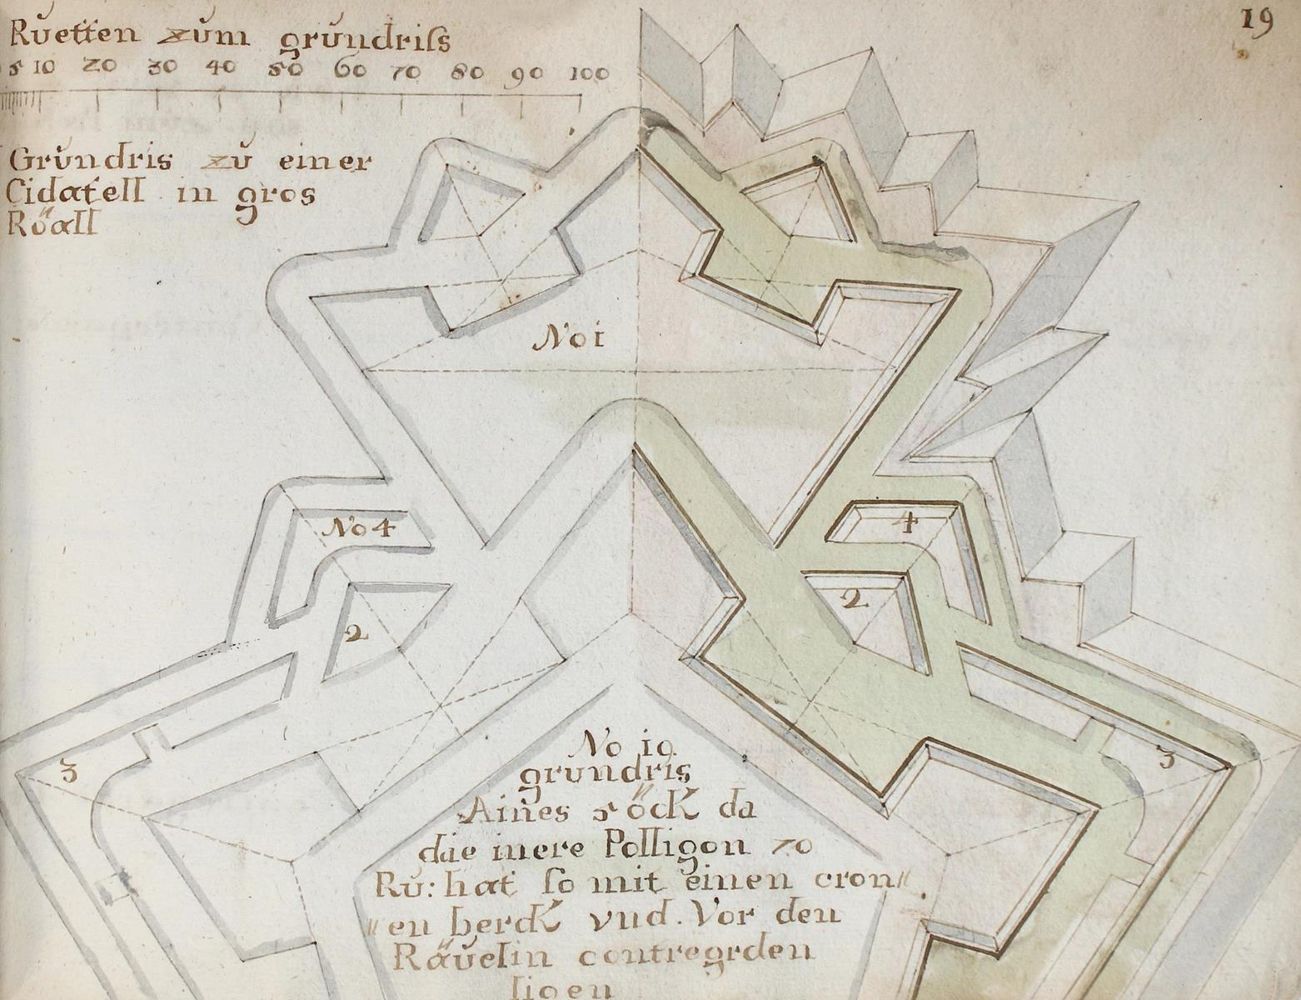 19
Rŭetten zŭm grŭndriſs
5 10 20 30 40 50 60 70 80 90 100
Grŭndris zŭ einer
Cidatell in gros
Röall
No 1
No 4
4
2
2
3
3
No 19
grŭndris
Aines 5 öck da
die inere Polligon 70
Rŭ: hat ſo mit einen cron〃
〃en berck vnd. Vor den
Räŭelin contregrden
ligen